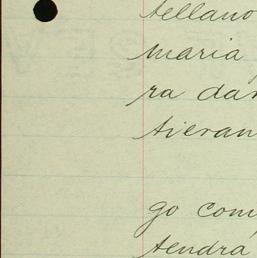 tellano
maria
ra dar
tieran
go com
tendrá